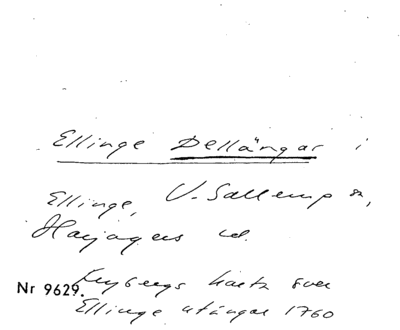 Ellinge Dellängar i
Ellinge, V. Sallerup sn,
Harjagers hd.
Nr 9629. Rybergs karta över
Ellinge utängar 1760